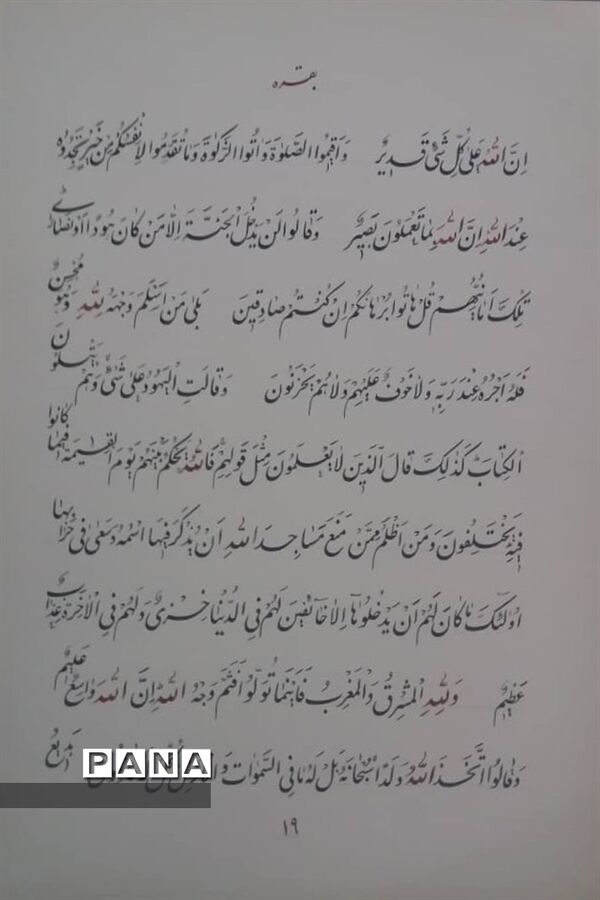 بقره
اِنَّ اللهَ عَلىٰ كُلِّ شَیْءٍ قَدیرٌ وَ اَقیمُوا الصَّلوٰةَ وَ اٰتُوا الزَّكوٰةَ وَ مٰا تُقَدِّمُوا لِاَنْفُسِكُمْ مِنْ خَیْرٍ تَجِدُوهُ
عِنْدَ اللهِ اِنَّ اللهَ بِمٰا تَعْمَلُونَ بَصیرٌ وَ قٰالُوا لَنْ یَدْخُلَ الْجَنَّةَ اِلّٰا مَنْ كٰانَ هُودًا اَوْ نَصٰارىٰ
تِلْكَ اَمٰانِیُّهُمْ قُلْ هٰاتُوا بُرْهٰانَكُمْ اِنْ كُنْتُمْ صٰادِقینَ بَلىٰ مَنْ اَسْلَمَ وَجْهَهُ لِلّٰهِ وَ هُوَ مُحْسِنٌ
فَلَهُ اَجْرُهُ عِنْدَ رَبِّهِ وَ لٰا خَوْفٌ عَلَیْهِمْ وَ لٰا هُمْ یَحْزَنُونَ وَ قٰالَتِ الْیَهُودُ عَلىٰ شَیْءٍ وَ هُمْ یَتْلُونَ
الْكِتٰابَ كَذٰلِكَ قٰالَ الَّذینَ لٰا یَعْلَمُونَ مِثْلَ قَوْلِهِمْ فَاللهُ یَحْكُمُ بَیْنَهُمْ یَوْمَ الْقِیٰمَةِ فیمٰا كٰانُوا
فیهِ یَخْتَلِفُونَ وَ مَنْ اَظْلَمُ مِمَّنْ مَنَعَ مَسٰاجِدَ اللهِ اَنْ یُذْكَرَ فیهَا اسْمُهُ وَ سَعىٰ فی خَرٰابِهٰا
اُولٰئِكَ مٰا كٰانَ لَهُمْ اَنْ یَدْخُلُوهٰا اِلّٰا خٰائِفینَ لَهُمْ فِی الدُّنْیٰا خِزْیٌ وَ لَهُمْ فِی الْاٰخِرَةِ عَذٰابٌ
عَظیمٌ وَ لِلّٰهِ الْمَشْرِقُ وَ الْمَغْرِبُ فَاَیْنَمٰا تُوَلُّوا فَثَمَّ وَجْهُ اللهِ اِنَّ اللهَ وٰاسِعٌ عَلیمٌ
وَ قٰالُوا اتَّخَذَ اللهُ وَلَدًا سُبْحٰانَهُ بَلْ لَهُ مٰا فِی السَّمٰوٰاتِ بَدیعُ
PANA
١٩